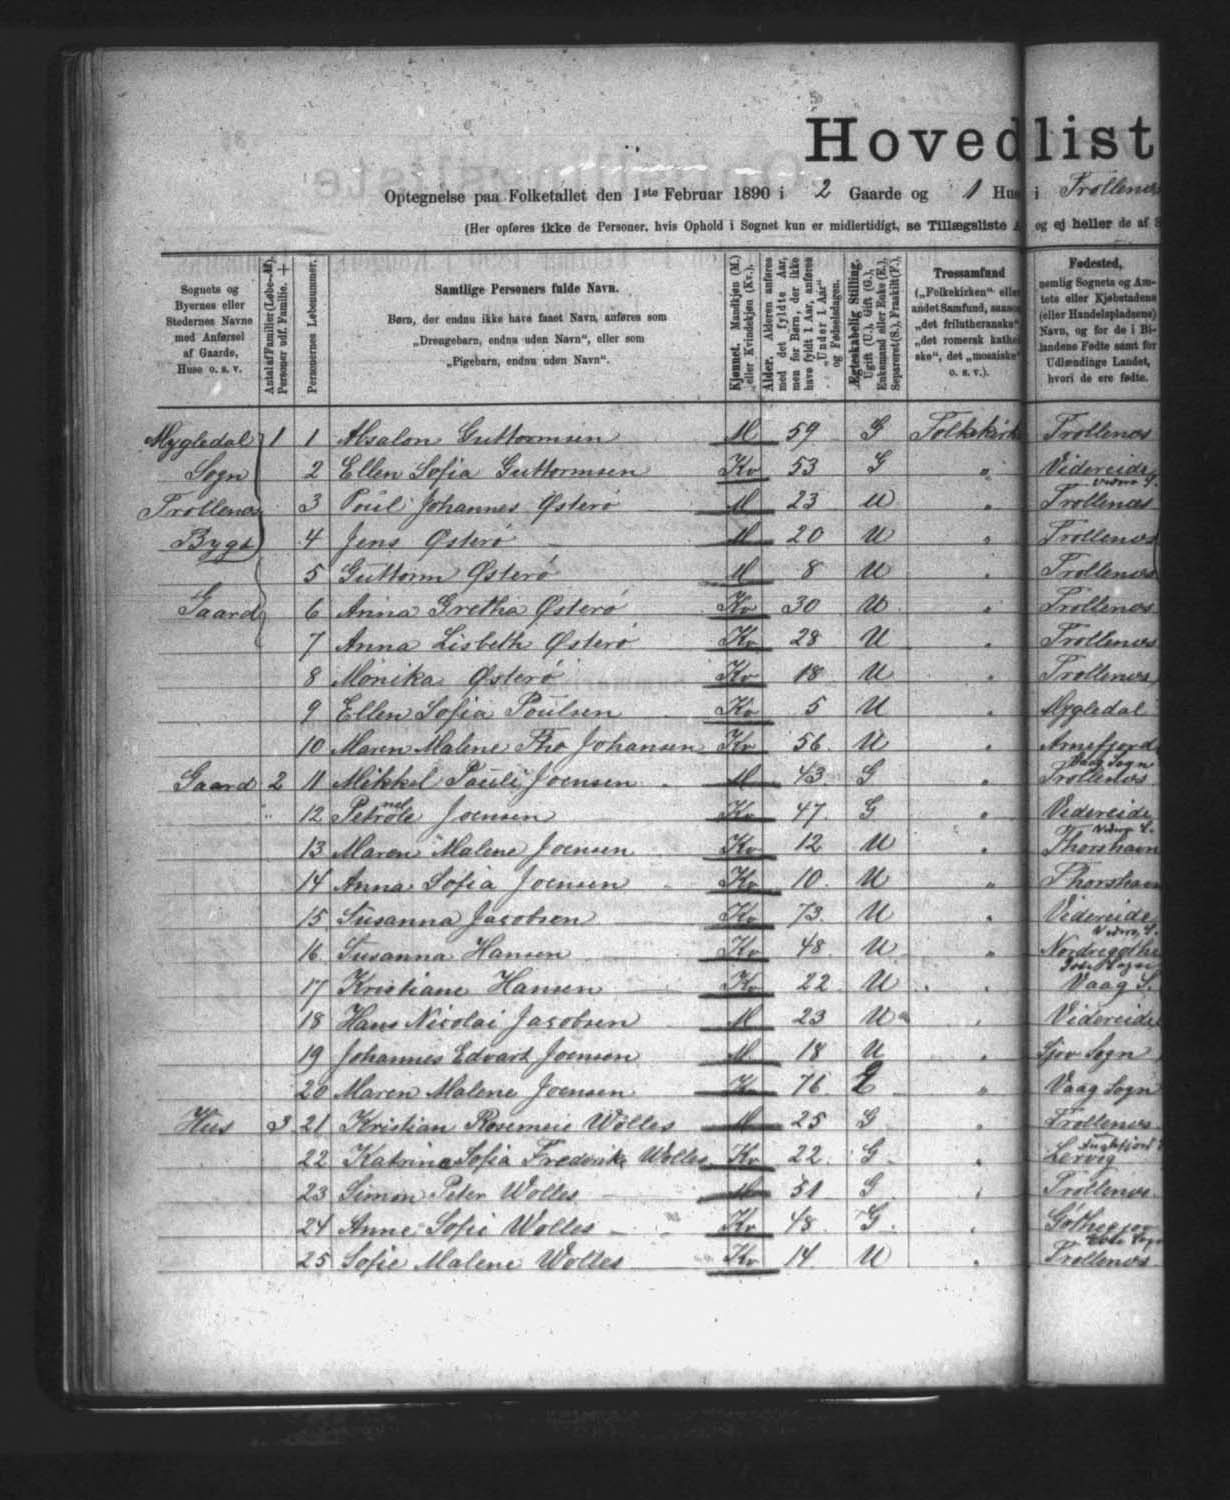 Hovedlist
Optegnelse paa Folketallet den 1ste Februar 1890 i 2 Gaarde og 1 Hus i Trollenæs
(Her opføres ikke de Personer, hvis Ophold i Sognet kun er midlertidigt, se Tillægsliste A og ej heller de af S
Sognets og Byernes eller Stedernes Navne med Anførsel af Gaarde, Huse o. s. v.
Antal af Familier (Løbe-№). Personer udf. Familie. +
Personernes Løbenummer.
Samtlige Personers fulde Navn.
Børn, der endnu ikke have faaet Navn, anføres som
„Drengebarn, endnu uden Navn“, eller som
„Pigebarn, endnu uden Navn“.
Kjønnet. Mandkjøn (M.) eller Kvindekjøn (Kv.).
Alder. Alderen anføres med det fyldte Aar, men for Børn, der ikke have fyldt 1 Aar, anføres „Under 1 Aar“ og Fødselsdagen.
Ægteskabelig Stilling. Ugift (U.), Gift (G.), Enkemand eller Enke (E.), Separeret (S.), Fraskilt (F.).
Trossamfund
(„Folkekirken“ eller
andet Samfund, saasom
„det frilutheranske“,
„det romersk kathol
ske“, det „mosaiske“
o. s. v.).
Fødested,
nemlig Sognets og Am-
tets eller Kjøbstadens
(eller Handelspladsens)
Navn, og for de i Bi-
landene Fødte samt for
Udlændinge Landet,
hvori de ere fødte.
Mygledal 1 1 Absalon Guttormsen M 59 G Folkekirk Trollenæs
Sogn 2 Ellen Sofia Guttormsen Kv 53 G " Videreide
Trollenæs 3 Poul Johannes Østerø M 23 U " Trollenæs
Bygd 4 Jens Østerø M 20 U " Trollenæs
5 Guttorm Østerø M 8 U " Trollenæs
Gaard 6 Anna Gretha Østerø Kv 30 U " Trollenæs
7 Anna Lisbeth Østerø Kv 28 U " Trollenæs
8 Monika Østerø Kv 18 U " Trollenæs
9 Ellen Sofia Poulsen Kv 5 U " Mygledal
10 Maren Malene Johansen Kv 56 U " Arnefjord
Vaag Sogn
Gaard 2 11 Mikkel Pauli Joensen M 43 G " Trollenæs
" 12 Joensen Kv 47 G " Videreide
13 Maren Malene Joensen Kv 12 U " Thorshavn
14 Anna Sofia Joensen Kv 10 U " Thorshavn
15 Susanna Jacobsen Kv 73 U " Videreide
16 Susanna Hansen Kv 48 U "
17 Kristiane Hansen Kv 22 U " Vaag S.
18 Hans Nicolai Jacobsen M 23 U " Videreide
19 Johannes Edvart Joensen M 18 U " Sjov Sogn
20 Maren Malene Joensen Kv 76 E " Vaag Sogn
Hus 3 21 Kristian Rosemeie Wolles M 25 G " Trollenæs
22 Katrine Sofia Frederike Wolles Kv 22 G Lervig
23 Simon Peter Wolles M 51 G " Trollenæs
24 Anne Sofie Wolles Kv 48 G "
25 Sofie Malene Wolles Kv 14 U " Trollenæs